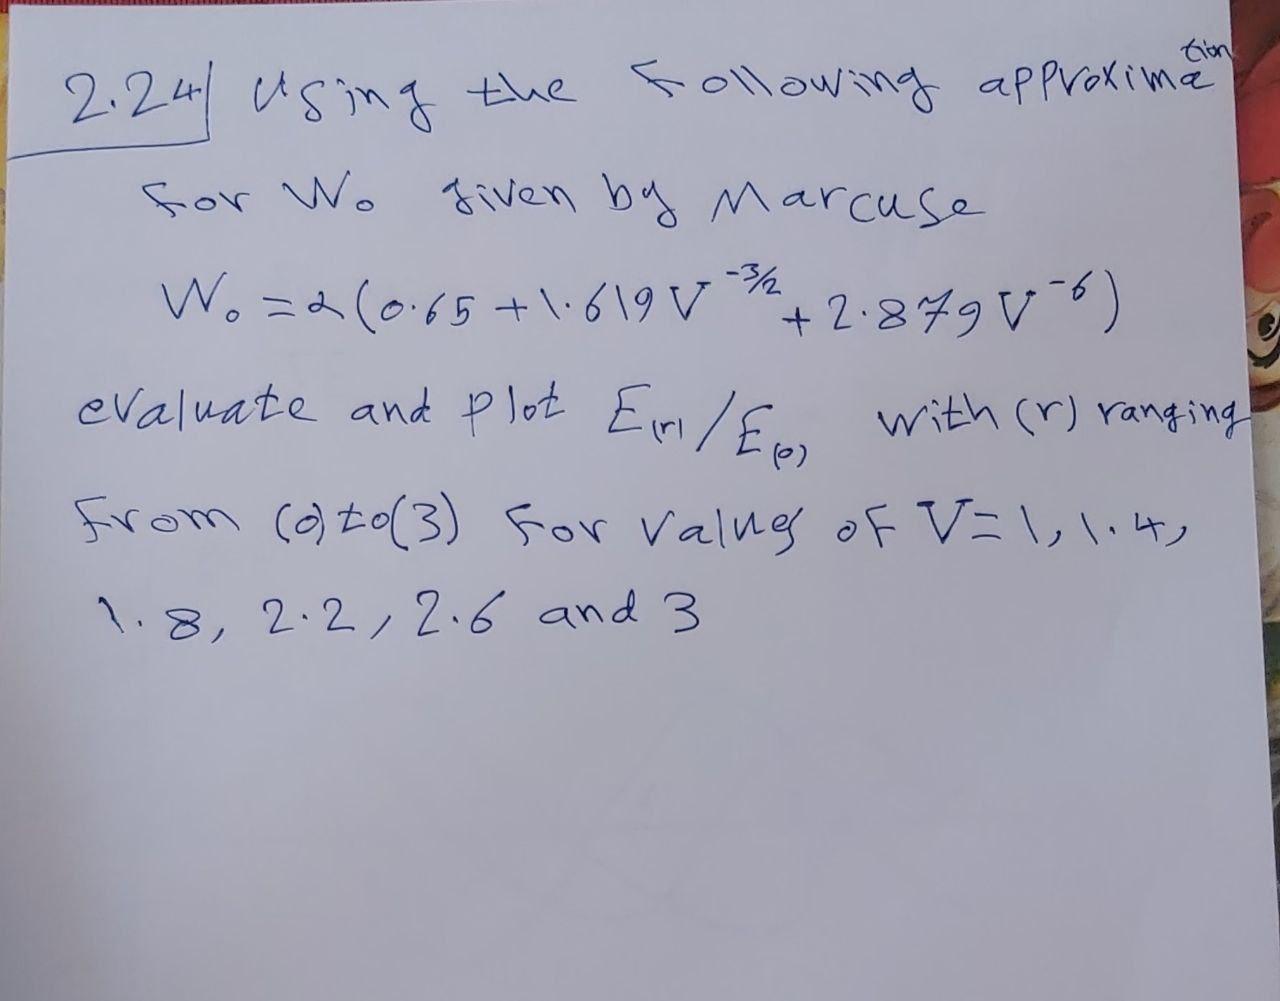 2.24 Using the Following approximation
For W₀ given by Marcuse
W₀ = a(0.65 + 1.619 V^-3/2 + 2.879 V^-6)
evaluate and plot E(r)/E(0) with (r) ranging
From (0) to (3) For values of V = 1, 1.4,
1.8, 2.2, 2.6 and 3